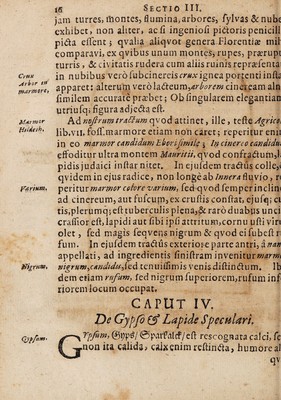 16 SECTIO III.
jam turres, montes, flumina, arbores, sylvas & nube
exhibet, non aliter, ac si ingeniosi pictoris penicill
picta essent; qvalia aliqvot genera Florentiæ mil
comparavi, ex qvibus unum montes, rupes, præru
turris, & civitatis rudera cum aliis ruinis repræsenta
in nubibus verò subcinereis crux ignea portenti insta
apparet: alterum verò lacteum, arborem cineream aln
similem accuratè præbet; Ob singularem elegantiam
utriusq; figura adjecta est.
Crux
Arbor in
marmore.
Ad nostrum tractum qvod attinet, ille, teste Agrico
lib. VII. foss. marmore etiam non caret; reperitur enim
in eo marmor candidum Eborisimile; In cinereo candidum
effoditur ultra montem Mauritii, qvod confractum, l
pidis judaici instar nitet. In ejusdem tractûs colle,
quidem in ejus radice, non longè ab Innera fluvio, r
peritur marmor colore varium, sed qvod semper incline
ad cinereum, aut fuscum, ex crustis constat, ejusq; cu
tis, plerumq; est tuberculis plena, & rarò duabus uncii
crassior est, lapidi aut sibi ipsi attritum, cornu usti viru
olet, sed magis seqvens nigrum & qvod ei subest ru
fum. In ejusdem tractûs exteriore parte antri, à nan
appellati, ad ingredientis sinistram invenitur marmo
nigrum, candidis, sed tenuissimis venis distinctum. Ib
dem etiam rufum, sed nigrum superiorem, rufum inf
riorem locum occupat.
Marmor
Hildesh.
Varium.
Nigrum.
CAPUT IV.
De Gypso & Lapide Speculari.
Gypsum.
GYpsum, Gyps/ Sparkalck/ est rescognata calci, se
non ita calida, calx enim restincta, humore al
qv